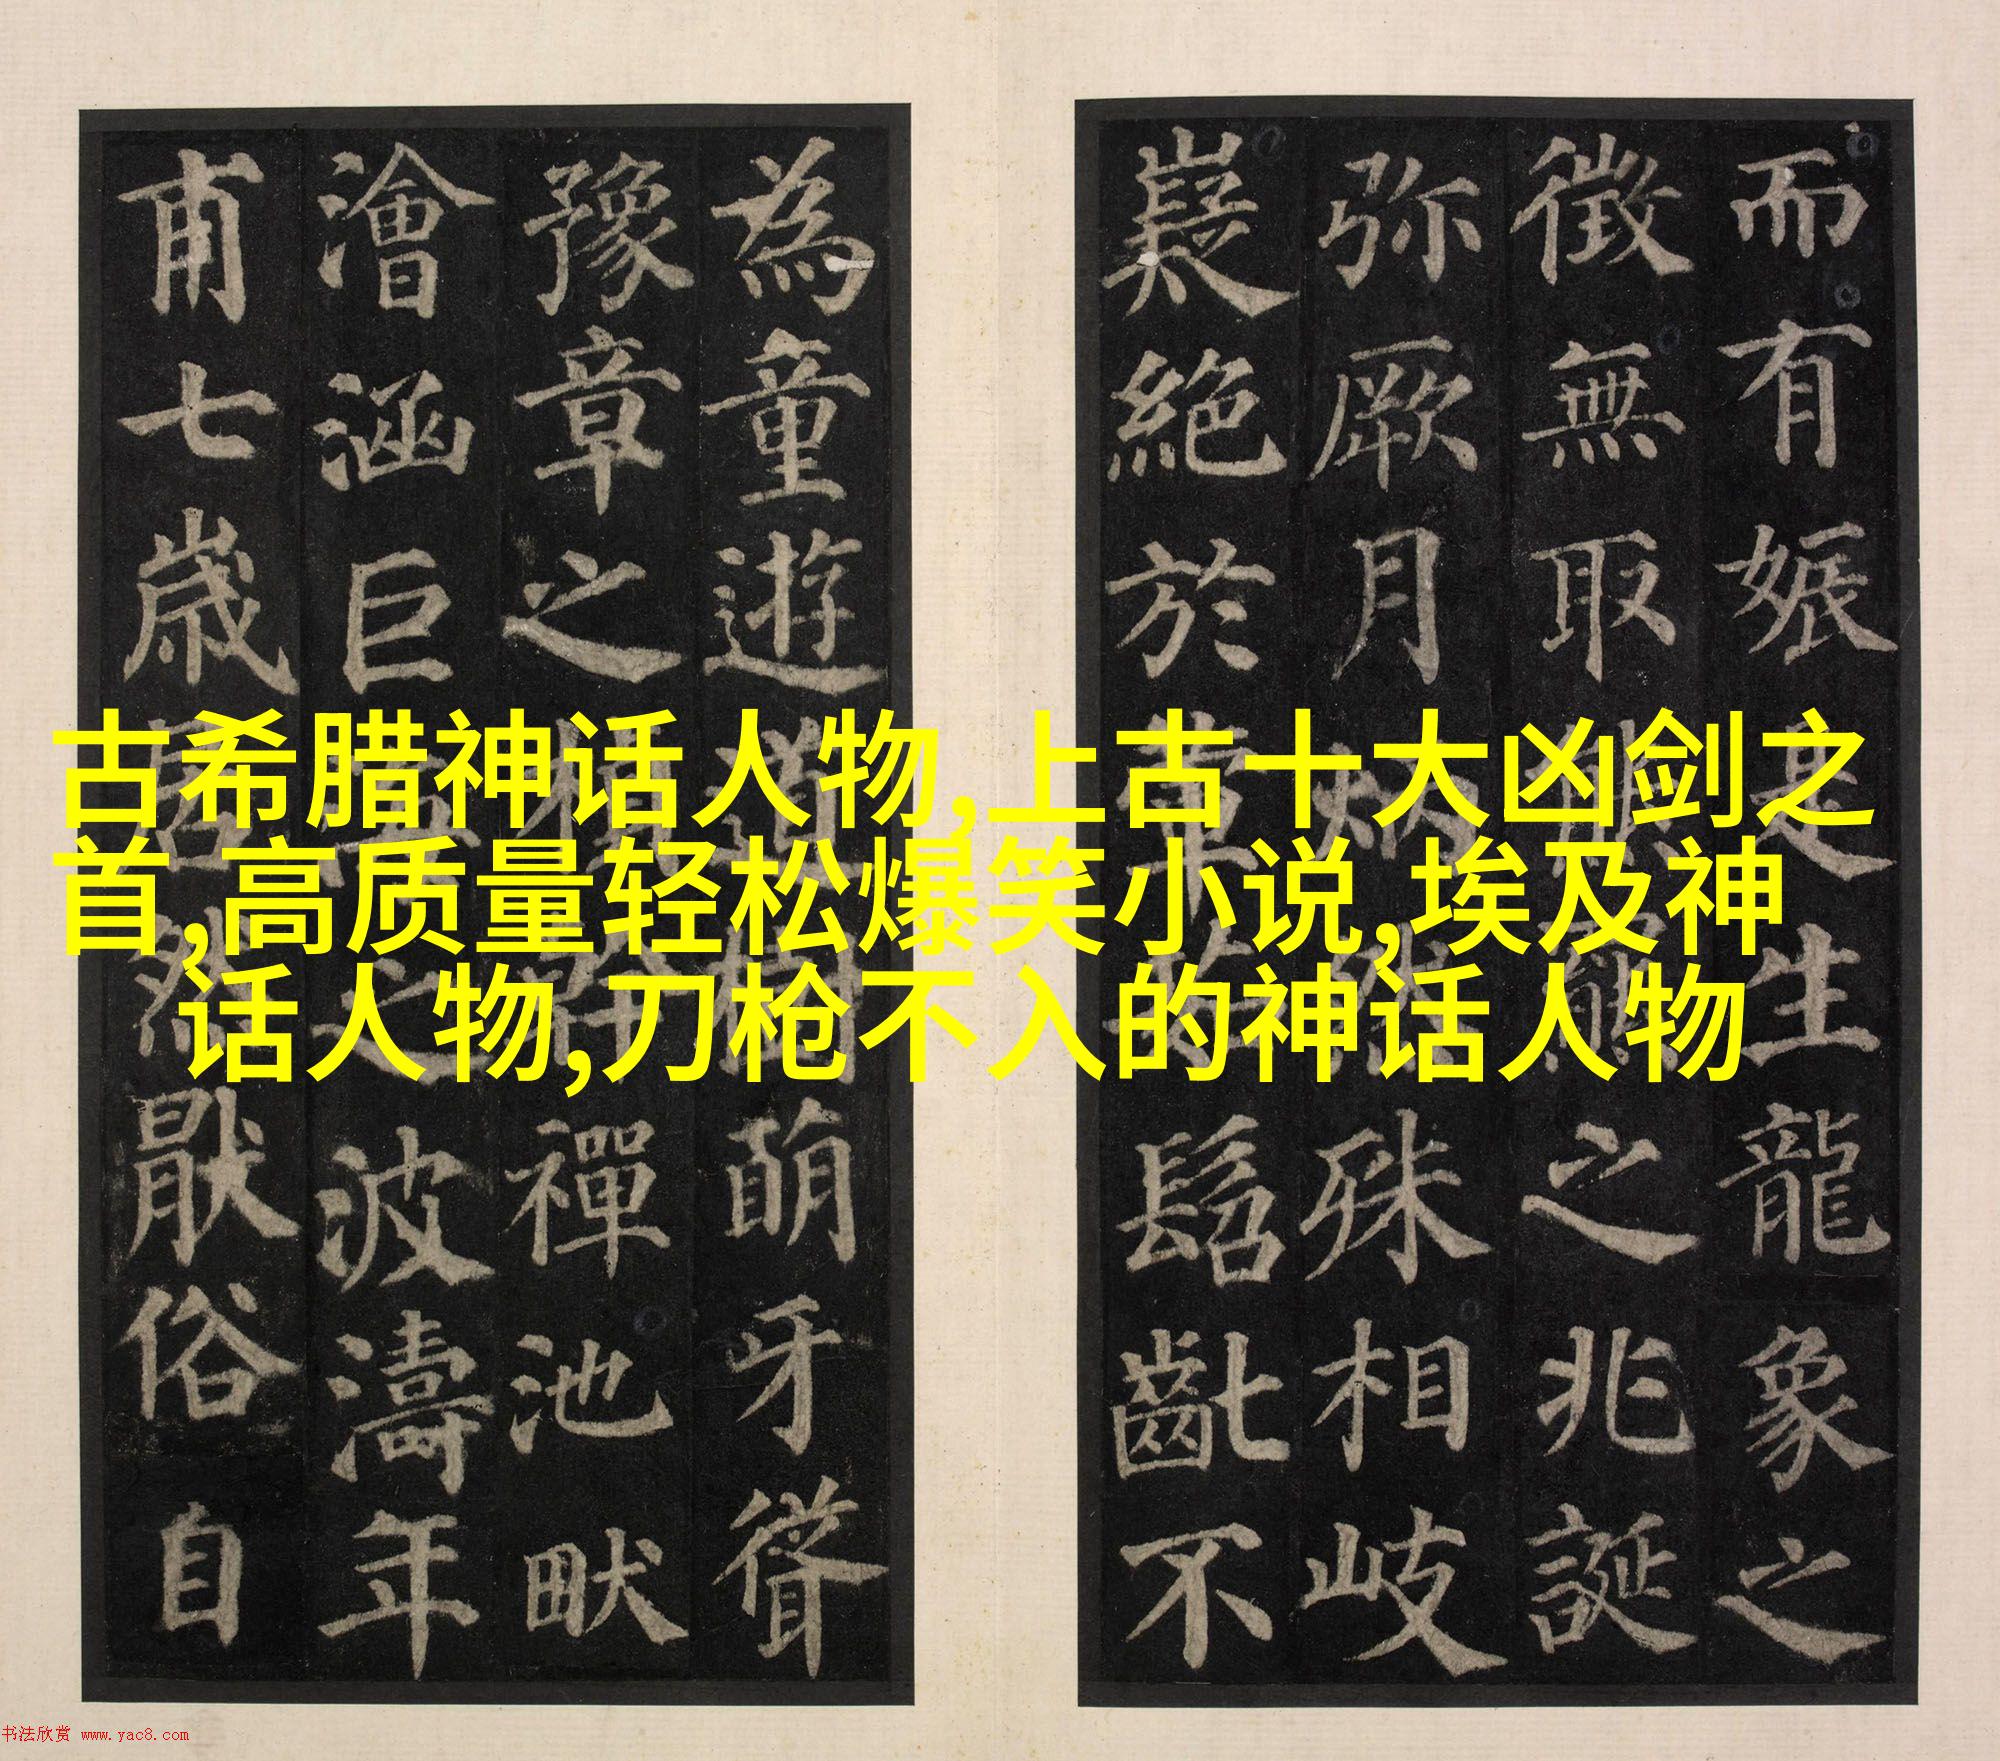 而有娠是生龍象之
徵無取熊羆之兆誕
弥厥月炳然殊相岐
嶷絶於葷茹髫齔不
為童遊道樹萌牙聳
豫章之楨幹禪池畎
澮涵巨海之波濤年
甫七歲居然厭俗自
古希腊神话人物,上古十大凶剑之
首,高质量轻松爆笑小说,埃及神
话人物,刀枪不入的神话人物
书法欣赏 www.yac8.com